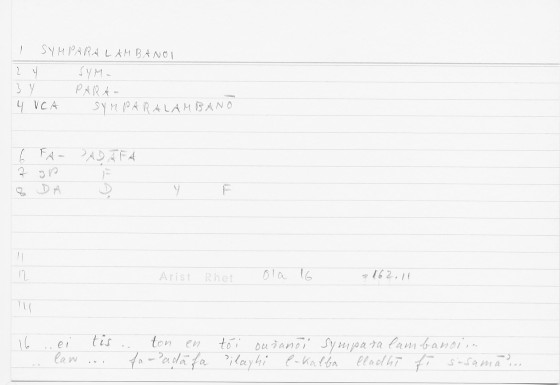 1 SYMPARALAMBANOI
2 Y SYM-
3 Y PARA-
4 VCA SYMPARALAMBANŌ
6 FA- ʾAḌĀFA
7 F
8 DA Ḍ Y F
11
12 Arist Rhet 01a 16 162.11
16 .. ei tis .. ton en tōi ouranōi symparalambanoi...
.. law ... fa-ʾaḍāfa ʾilayhi l-kalba lladhī fī s-samāʾ...